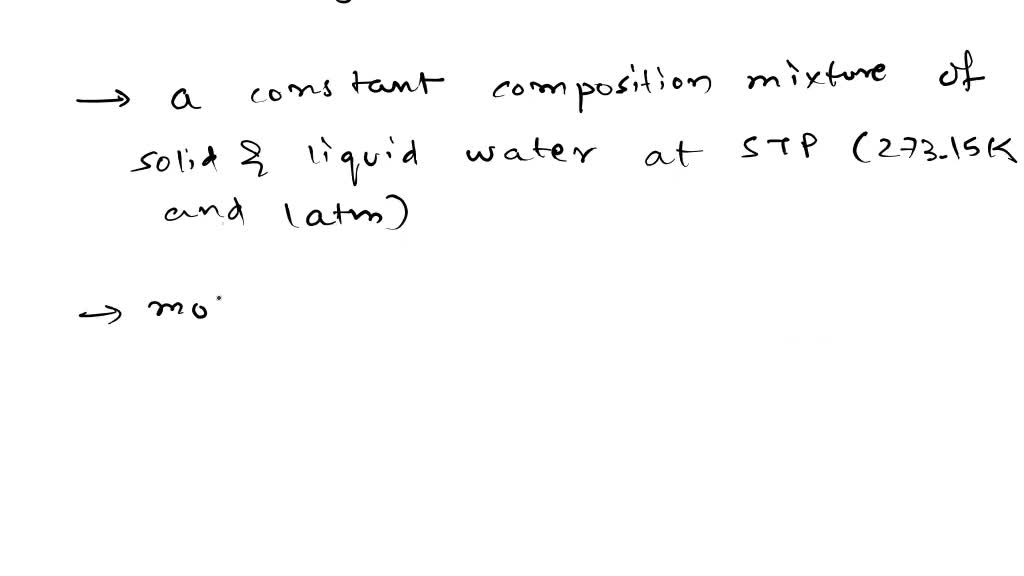 → a constant composition mixture of
solid & liquid water at STP (273.15K
and 1atm)
→ mo